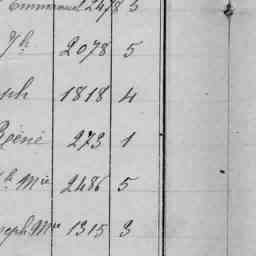 Emmanuel 2478 5
Jh 2078 5
ph 1818 4
René 273 1
h Mie 2486 5
seph Mie 1315 3